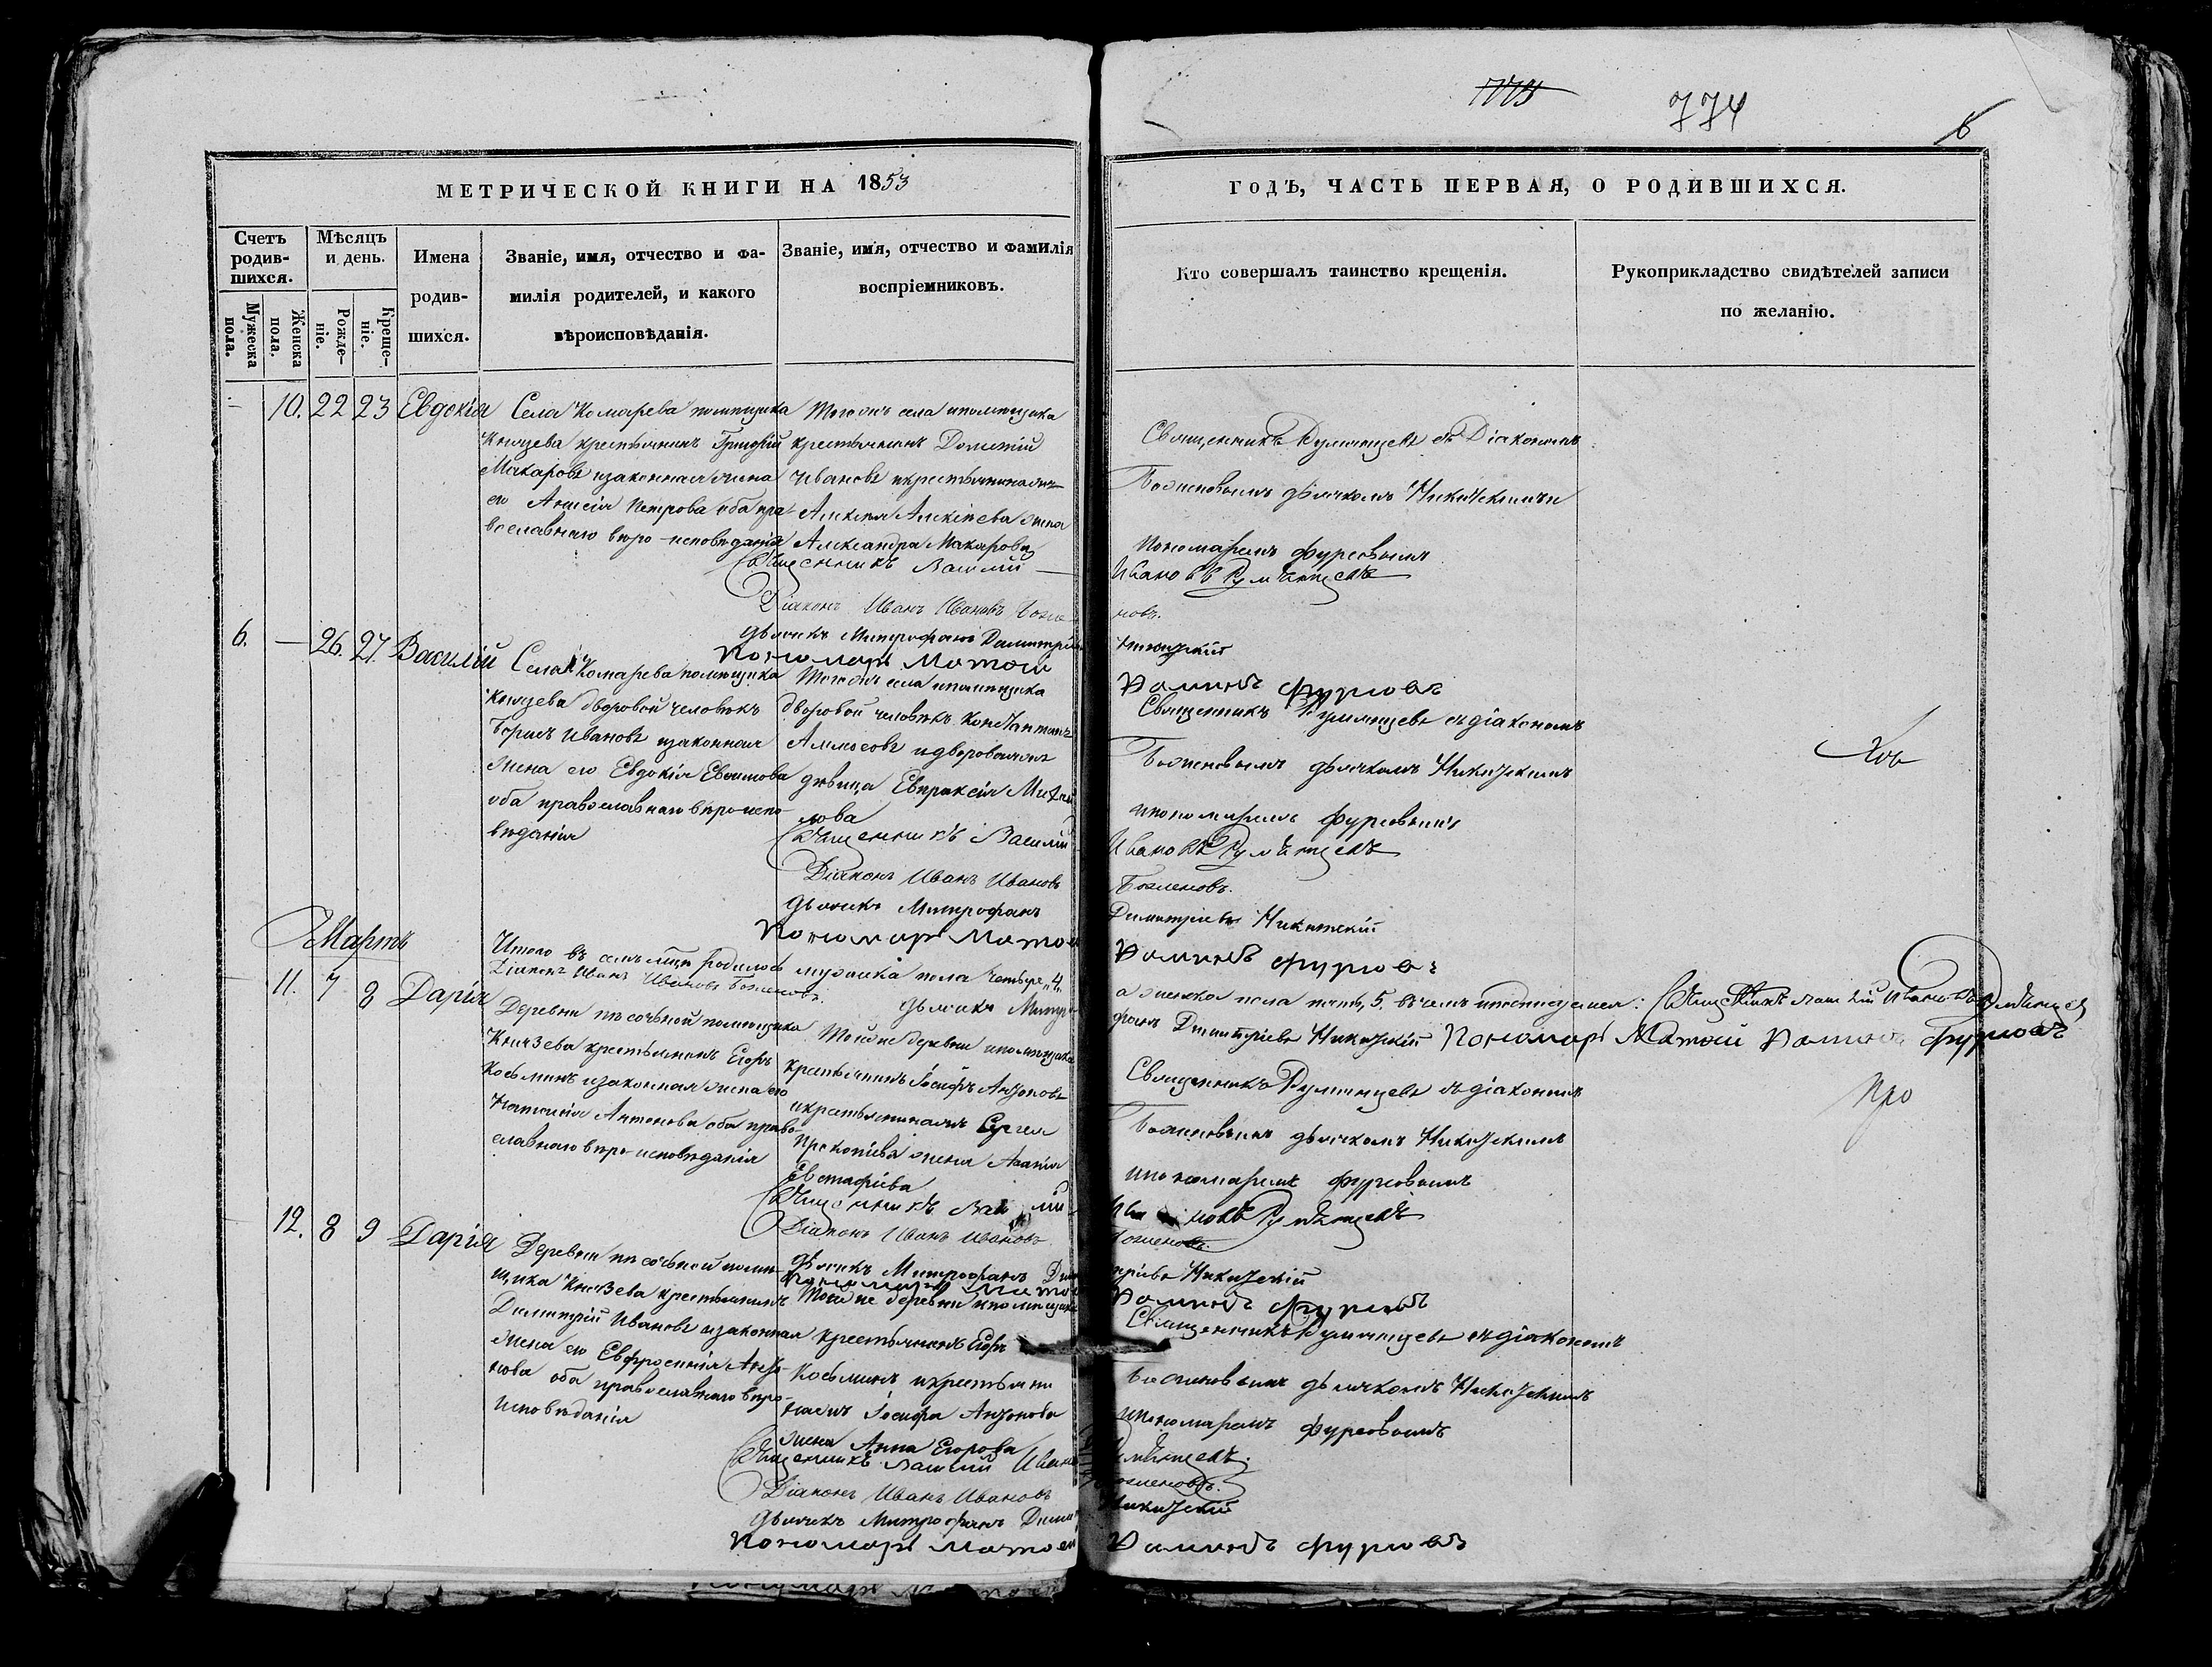 774
6
МЕТРИЧЕСКОЙ КНИГИ НА 1853
ГОДЪ, ЧАСТЬ ПЕРВАЯ, О РОДИВШИХСЯ.
Счетъ родив-шихся.
Мужеска пола.
Женска пола.
Мѣсяцъ и день.
Рожде-ніе.
Креще-ніе.
Имена
родив-
шихся.
Званіе, имя, отчество и фа-
милія родителей, и какого
вѣроисповѣданія.
Званіе, имя, отчество и фамилія
воспріемниковъ.
Кто совершалъ таинство крещенія.
Рукоприкладство свидѣтелей записи
по желанію.
10. 22 23 Евдокія
Села Комарева помещика
Князева крестьянинъ Григорій
Макаровъ и законная жена
его Анисія Петрова оба пра-
вославнаго веро-исповеданія
крестьянинъ Дометій
Ивановъ
жена
Александра Макарова
Священникъ Румянцевъ съ Діакономъ
Боженовымъ дьячкомъ Никитскимъ и
пономаремъ Фурсовымъ
Священникъ Василий
Ивановъ Румянцевъ
Діаконъ Иванъ Ивановъ Боже
новъ.
Дьячекъ Митрофанъ Димитріевъ
Никитскій
Пономарь Матвей
Фурсовъ
6. — 26. 27. Василій
Села Комарева помещика
Князева дворовой человекъ
Борисъ Ивановъ и законная
жена его Евдокія Евфимова
оба православнаго вероиспо-
веданія
дворовой человекъ Константинъ
девица Евпраксія Михай
лова
Священникъ Румянцевъ съ діакономъ
Боженовымъ дьячкомъ Никитскимъ
и пономаремъ Фурсовымъ
Священникъ Василий
Ивановъ Румянцевъ
Діаконъ Иванъ Ивановъ
Боженовъ.
Дьячекъ Митрофанъ
Димитріевъ Никитскій
Пономарь Матвей
Фурсовъ
Мартъ
Итого въ семъ м-це родилось мужеска пола четыре „4„
а женска пола пять, 5, въ чемъ и подписуемся: Священникъ Василій Ивановъ Румянцевъ
Діаконъ Иванъ Ивановъ Боженовъ.
Дьячекъ Митро
фанъ Димитріевъ Никитскій Пономарь Матвей Фурсовъ
11. 7 8 Дарія
Деревни Песочной помещика
Князева крестьянинъ Егоръ
Косьминъ и законная жена его
Наталія Антонова оба право-
славнаго веро-исповеданія
Той же деревни и помещика
крестьянинъ Іосифъ
Сергея
Прокопіева жена
Евстафіева
Священникъ Румянцевъ съ діакономъ
Боженовымъ дьячкомъ Никитскимъ
и пономаремъ Фурсовымъ
Про
Священникъ Василий
Ивановъ Румянцевъ
Діаконъ Иванъ Ивановъ
Боженовъ.
Дьячекъ Митрофанъ Дими
тріевъ Никитскій
Пономарь Матвей
Фурсовъ
12. 8 9 Дарія
Деревни Песочной поме-
щика Князева крестьянинъ
Димитрій Ивановъ и законная
жена его Евфросинія
нова оба православнаго веро-
исповеданія
Той же деревни и помещика
крестьянинъ Егоръ
Косьминъ и крестьяни
Іосифа
жена Анна Егорова
Священникъ Румянцевъ съ діакономъ
Боженовымъ дьячкомъ Никитскимъ
и пономаремъ Фурсовымъ
Священникъ Василий Ивановъ
Румянцевъ.
Діаконъ Иванъ Ивановъ
Боженовъ.
Дьячекъ Митрофанъ Дими
Никитскій
Пономарь Матвей
Фурсовъ